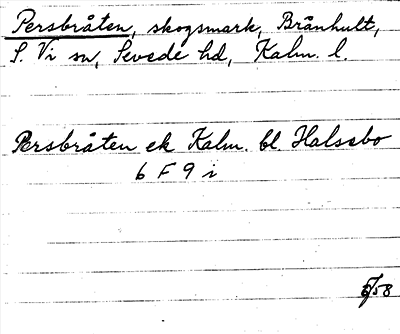 Persbråten, skogsmark, Brånhult,
S. Vi sn, Sevede hd, Kalm. l.
Persbråten ek Kalm. bl. Halssbo
6 F 9 i
58